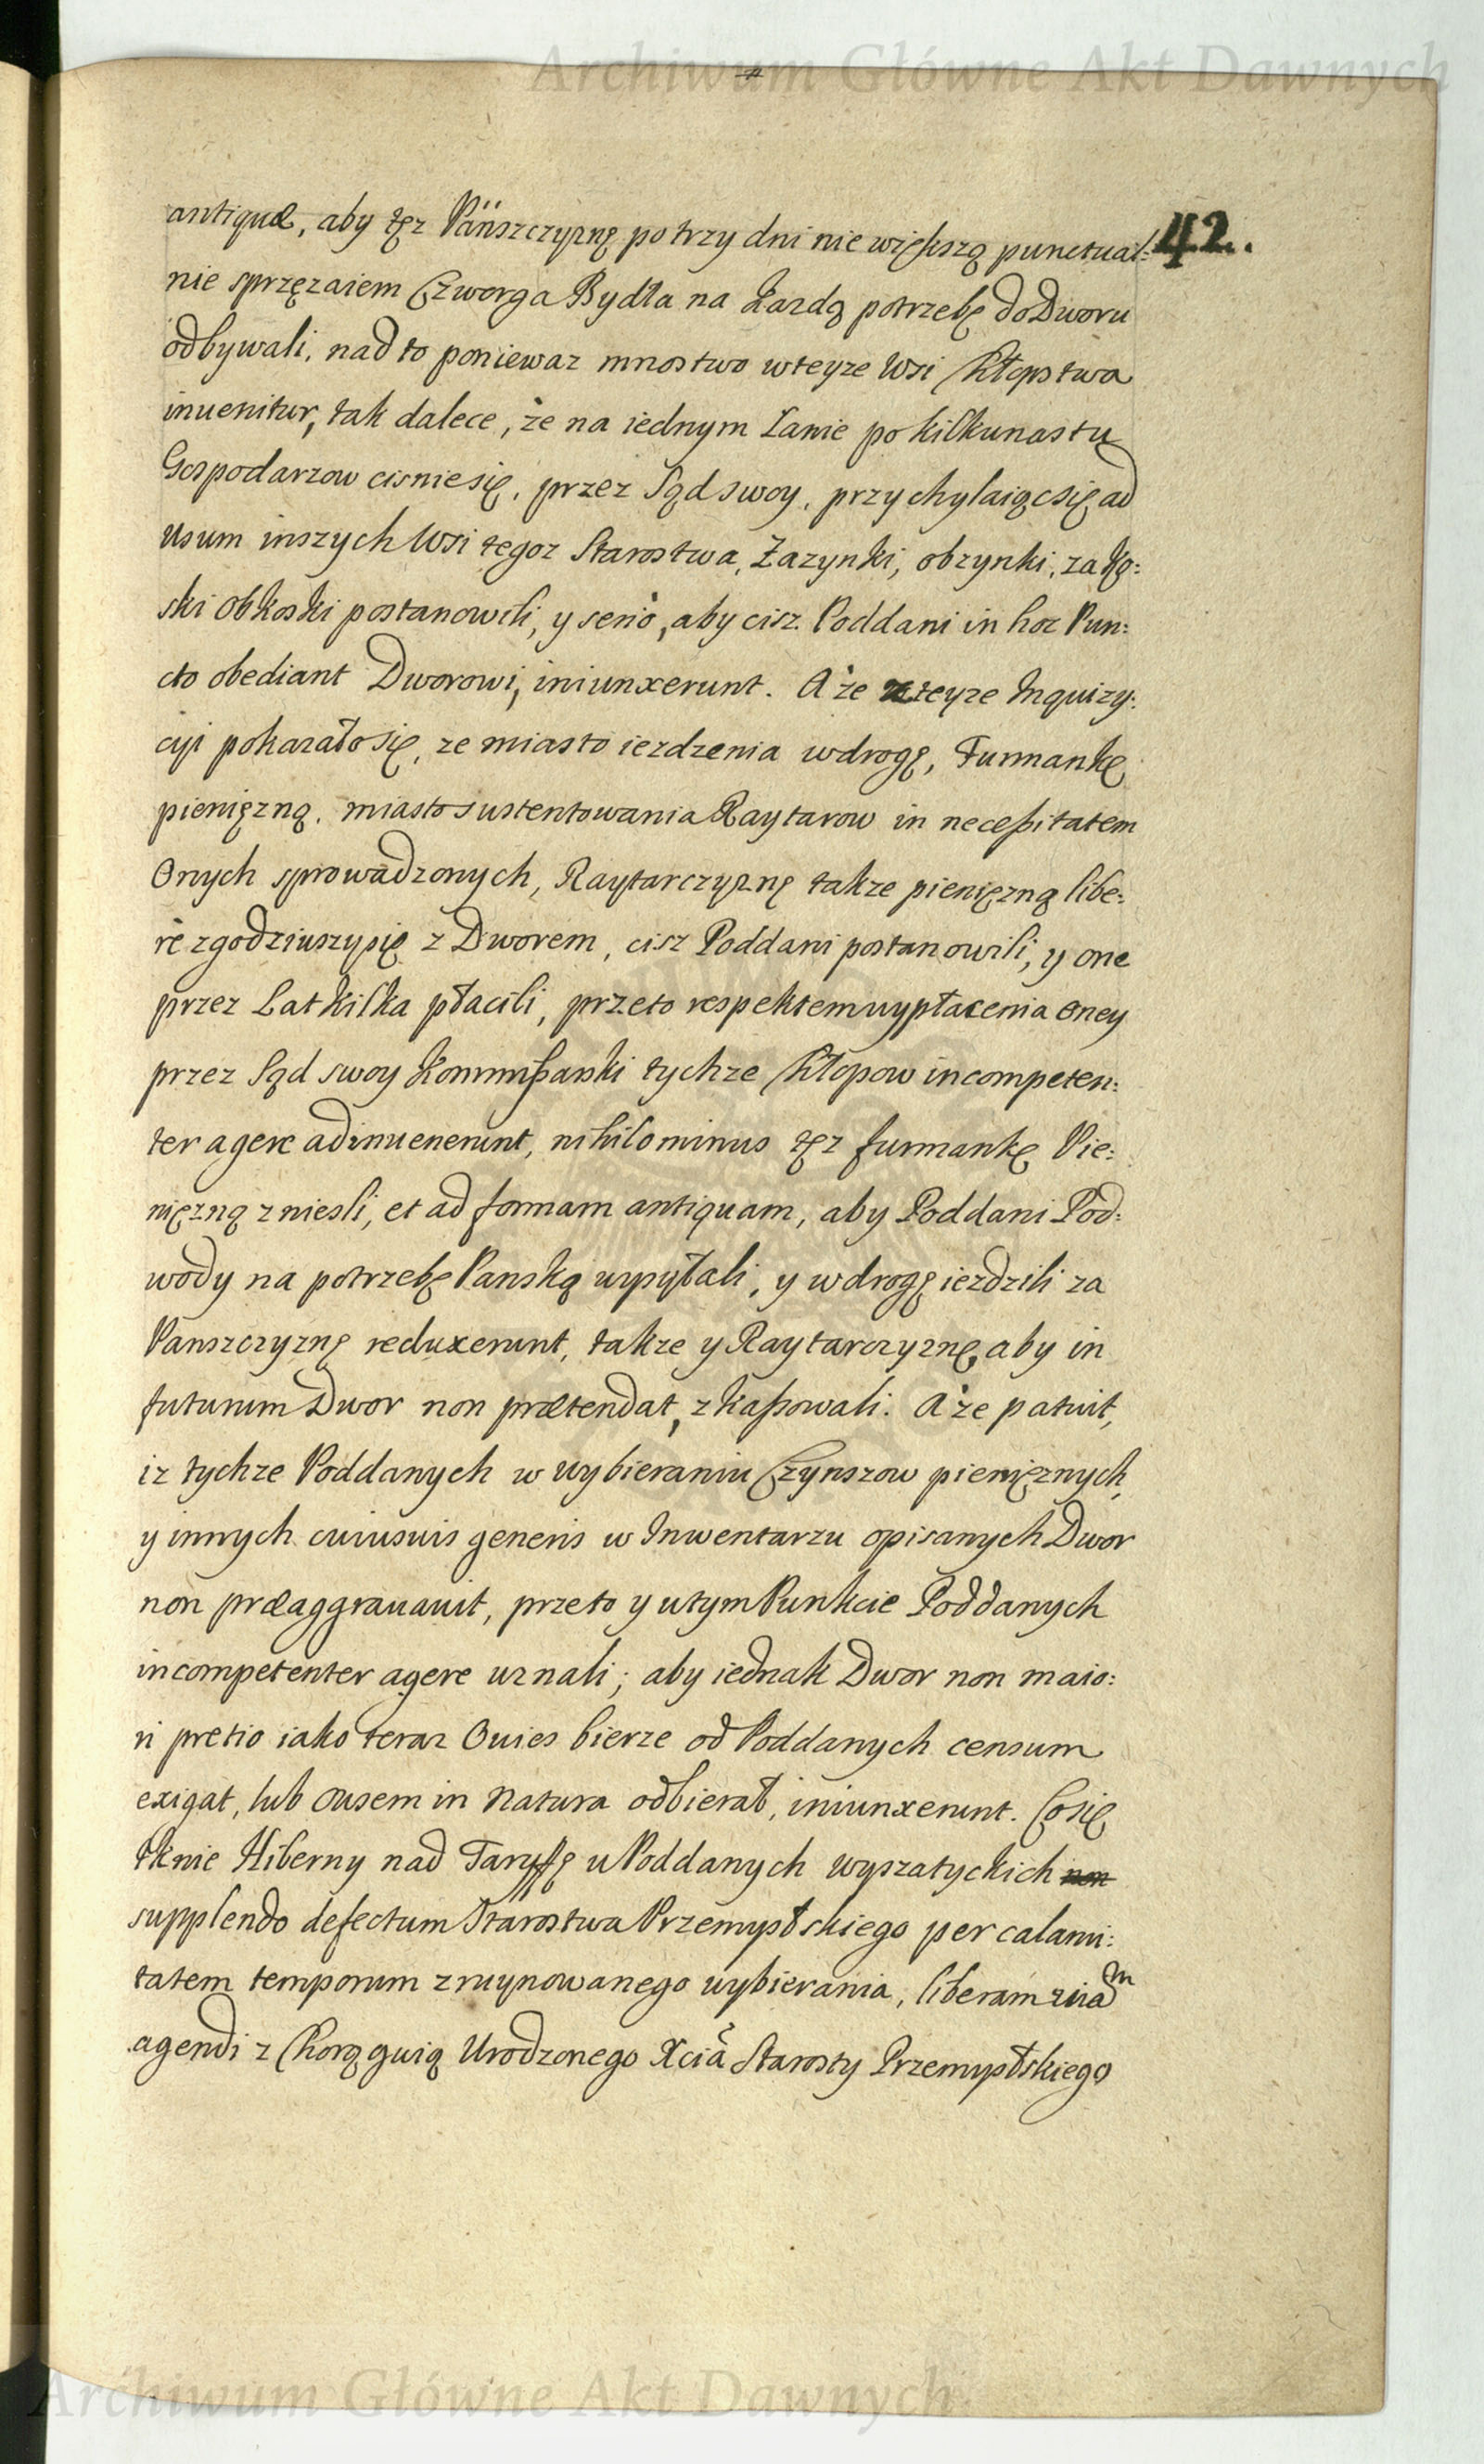 Archiwum Główne Akt Dawnych
42.
antiquæ, aby tęz Pańszczyznę po trzy dni nie większą punctual:
nie sprzęzaiem Czworga Bydła na każdą potrzebę do Dworu
odbywali, nad to poniewaz mnostwo wteyze Wsi Chłopstwa
inuenitur, tak dalece, że na iednym Łanie po kilkunastu
Gospodarzow cisnie się, przez Sąd swoy, przychylaiąc się ad
usum inszych Wsi tegoz Starostwa, Zazynki, obzynki, zako:
ski obkoski postanowili, y serio, aby cisz Poddani in hoc Pun:
cto obediant Dworowi, iniunxerunt. A że zteyze Inquizy:
cyi pokazało się, ze miasto iezdzenia wdrogę, Furmankę
pienięzną, miasto sustentowania Raytarow in necessitatem
Onych sprowadzonych, Raytarczyznę takze pienięzną libe:
rè zgodziwszy się z Dworem, cisz Poddani postanowili, y one
przez Lat kilka płacili, przeto respektem wypłacenia oney
przez Sąd swoy Kommissarski tychze Chłopow incompeten:
ter agere adinuenerunt, nihilominus tęz furmankę Pie:
nięzną zniesli, et ad formam antiquam, aby Poddani Pod:
wody na potrzebę Panską wysyłali, y wdrogę iezdzili za
Panszczyznę reduxerunt, takze y Raytarczyznę, aby in
futurum Dwor non prætendat, zkassowali. A że patuit,
iz tychze Poddanych w wybieraniu Czynszow pienięznych,
y innych cuiusuis generis w Inwentarzu opisanych Dwor
non præaggrauauit, przeto y wtym Punkcie Poddanych
incompetenter agere uznali; aby iednak Dwor non maio:
ri pretio iako teraz Owies bierze od Poddanych censum
exigat, lub Owsem in Natura odbierał, iniunxerunt. Co się
tknie Hiberny nad Taryffę u Poddanych wyszatyckich non
supplendo defectum Starostwa Przemysłskiego per calami:
tatem temporum zruynowanego wybierania, liberam viam
agendi z Chorągwią Urodzonego Xcia Starosty Przemysłskiego
Archiwum Główne Akt Dawnych